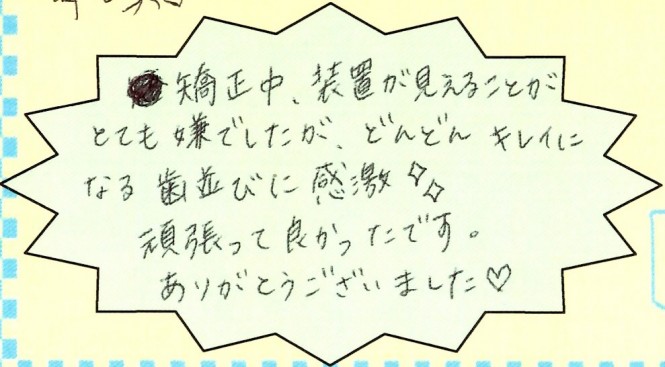 矯正中、装置が見えることが
とても嫌でしたが、どんどん キレイに
なる 歯並びに 感激✧✧
頑張って良かったです。
ありがとうございました♡